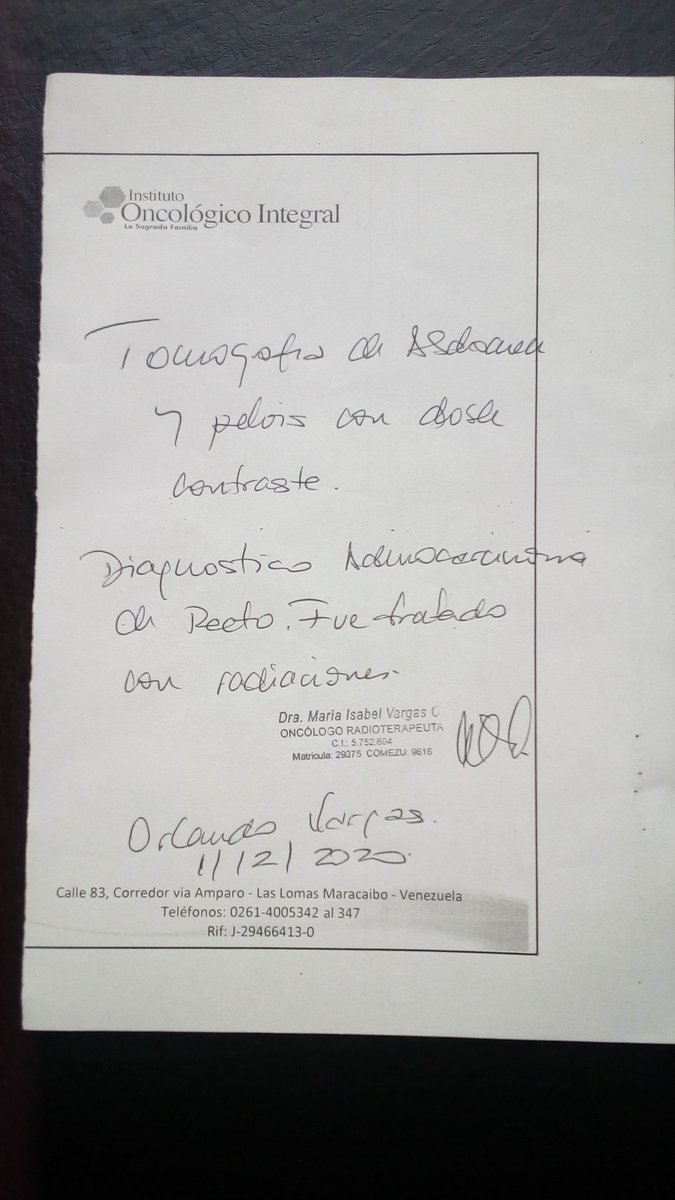 Instituto
Oncológico Integral
La Sagrada Familia
Tomografia de Abdomen
y pelvis con doble
contraste.
Diagnostico Adenocarcinoma
de Recto. Fue tratado
con radiaciones.
Dra. María Isabel Vargas C.
ONCÓLOGO RADIOTERAPEUTA
C.I.: 5.752.694
Matricula: 29375 COMEZU: 9616
Orlando Vargas.
1/12/2020.
Calle 83, Corredor via Amparo - Las Lomas Maracaibo - Venezuela
Teléfonos: 0261-4005342 al 347
Rif: J-29466413-0